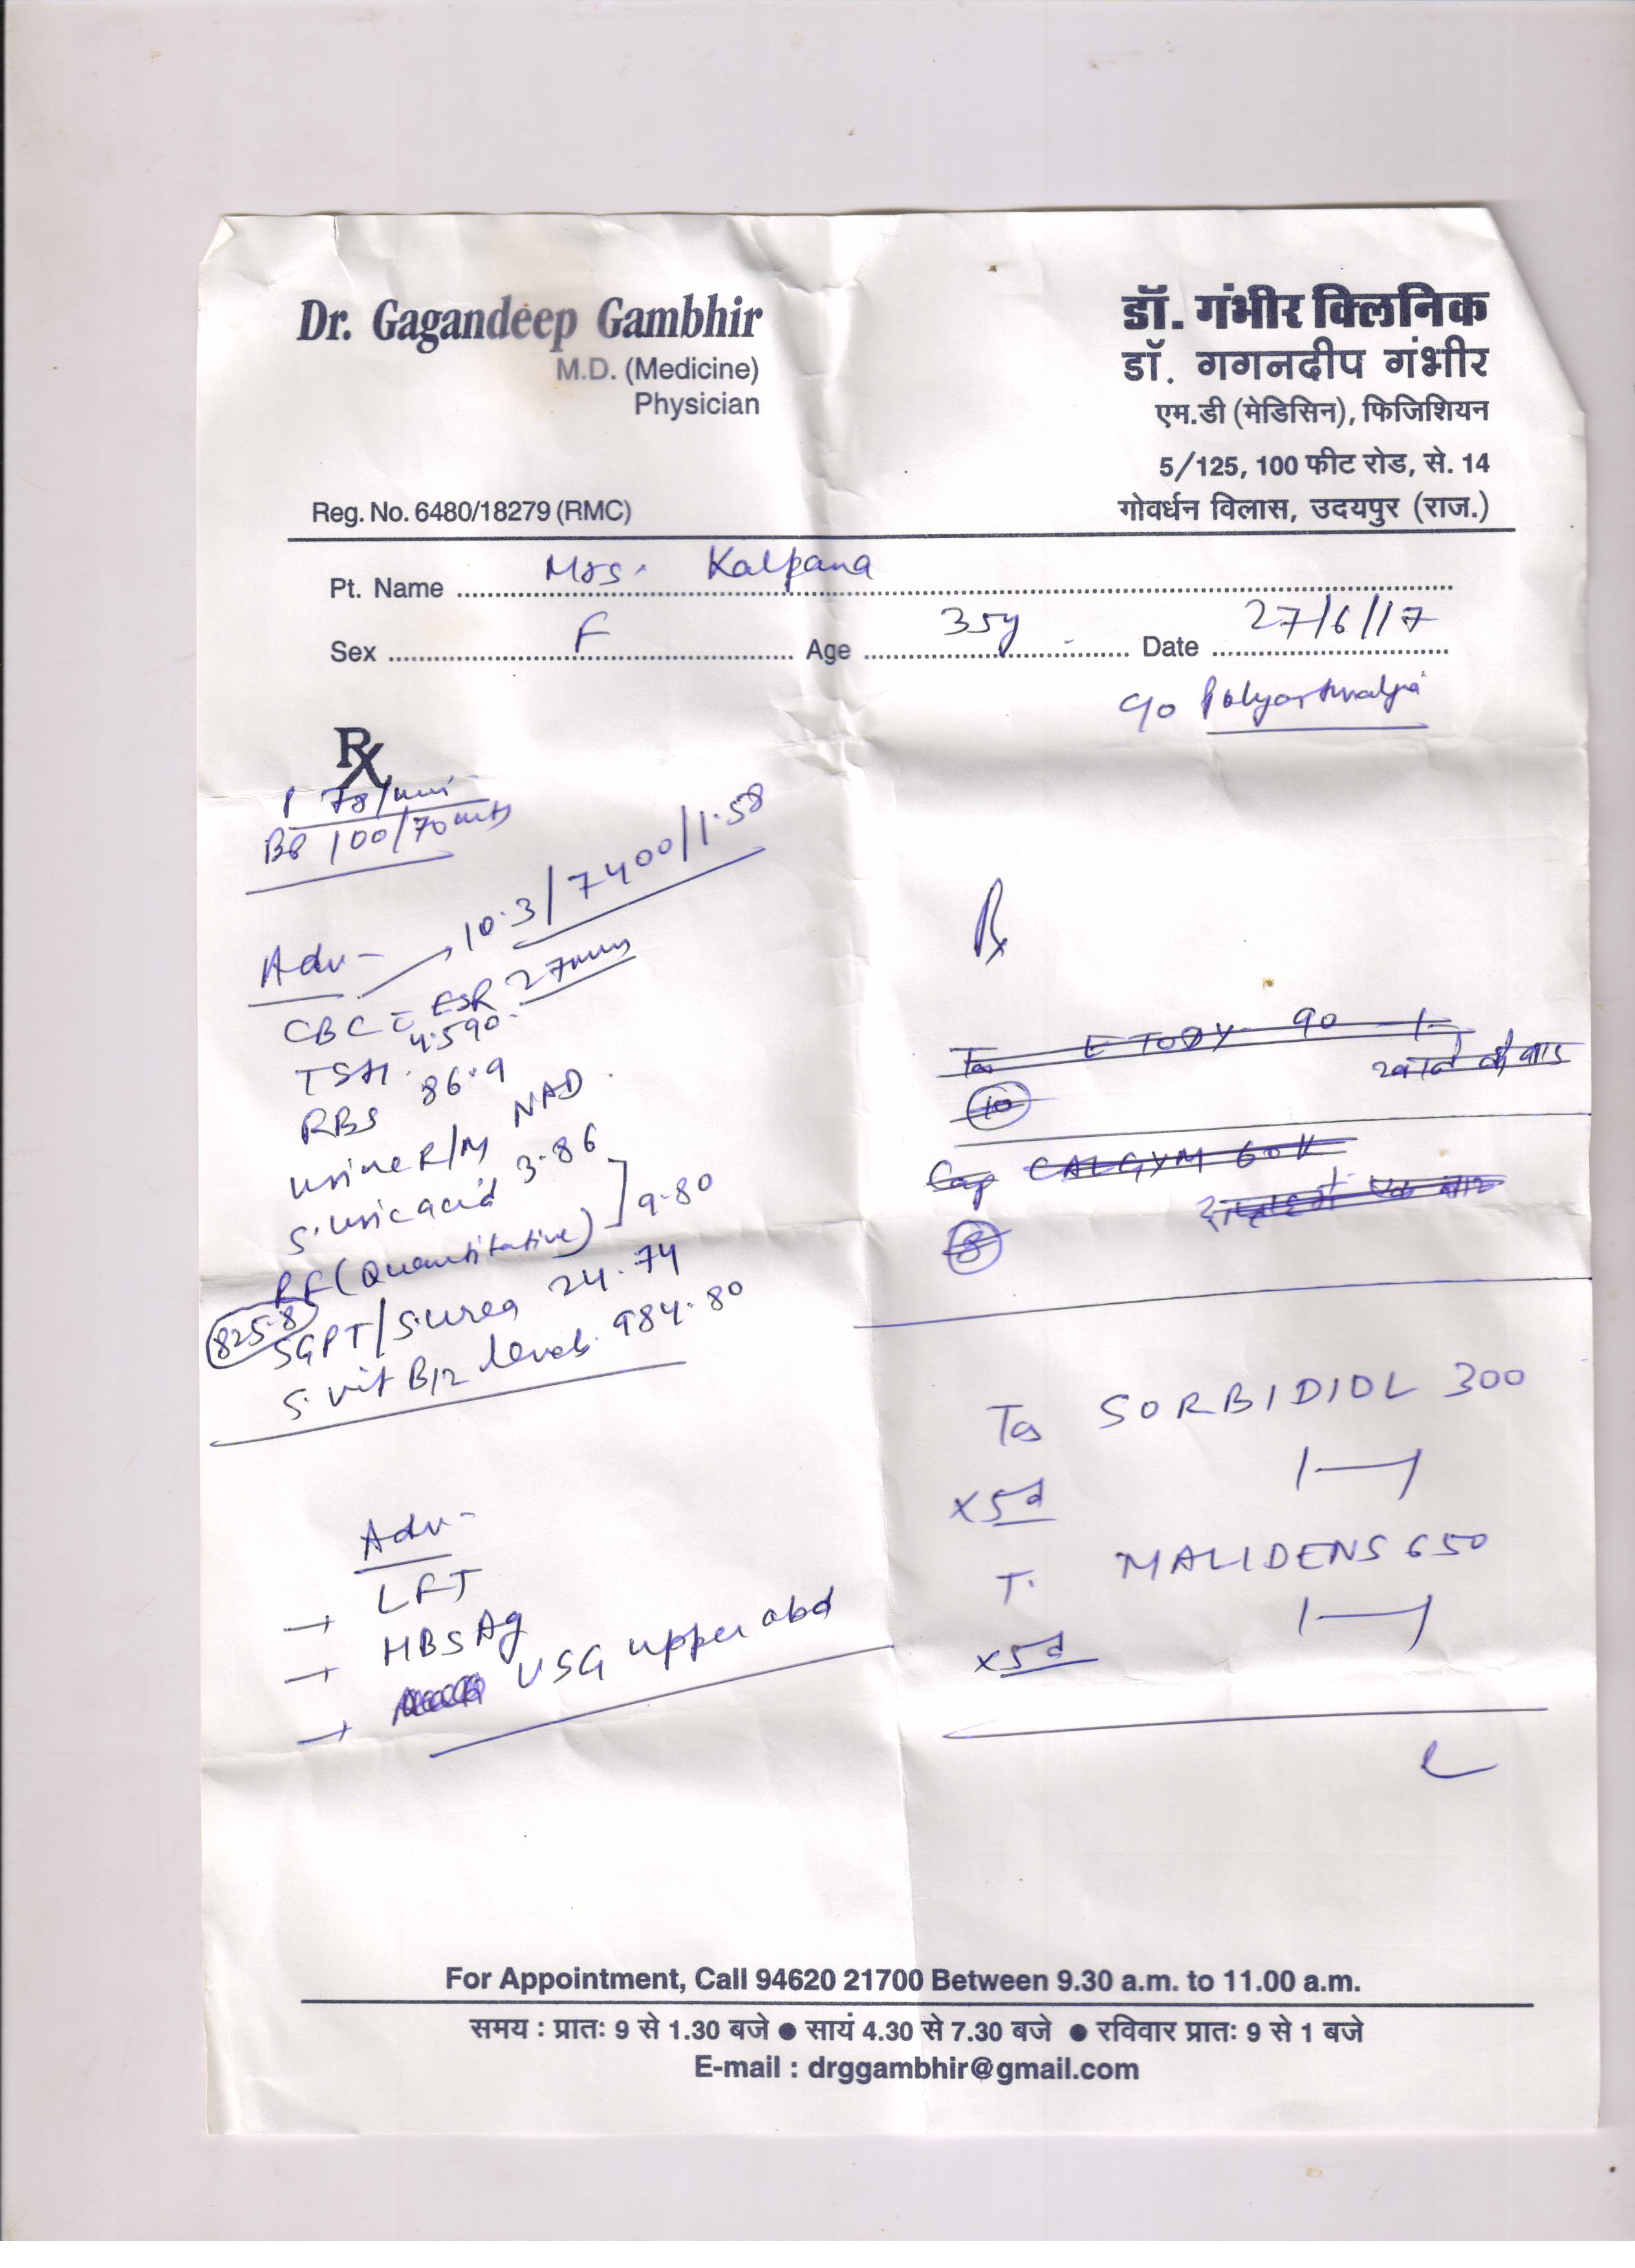 Dr. Gagandeep Gambhir
M.D. (Medicine)
Physician
Reg. No. 6480/18279 (RMC)
डॉ. गंभीर क्लिनिक
डॉ. गगनदीप गंभीर
एम.डी (मेडिसिन), फिजिशियन
5/125, 100 फीट रोड, से. 14
गोवर्धन विलास, उदयपुर (राज.)
Pt. Name Mrs. Kalpana
Sex F Age 35y Date 27/6/17
c/o Polyarthralgia
Rx
P 78/min
BP 100/70
Adv-
10.3/7400/1.58
CBC c ESR 27mm
TSH 4.590
RBS 86.9
urine R/M NAD
S. uric acid 3.86
RF (Quantitative) ] 9.80
825.8
SGPT/S. urea 24.74
S. vit B12 levels 984.80
Adv-
→ LFT
→ HBsAg
→ USG upper abd
Rx
Tab ETODY 90
खाने के बाद
10
Cap CALGYM 60K
8
Tab SORBIDIOL 300
1—1
x5d
T. MALIDENS 650
1—1
x5d
For Appointment, Call 94620 21700 Between 9.30 a.m. to 11.00 a.m.
समय : प्रातः 9 से 1.30 बजे ● सायं 4.30 से 7.30 बजे ● रविवार प्रातः 9 से 1 बजे
E-mail : drggambhir@gmail.com